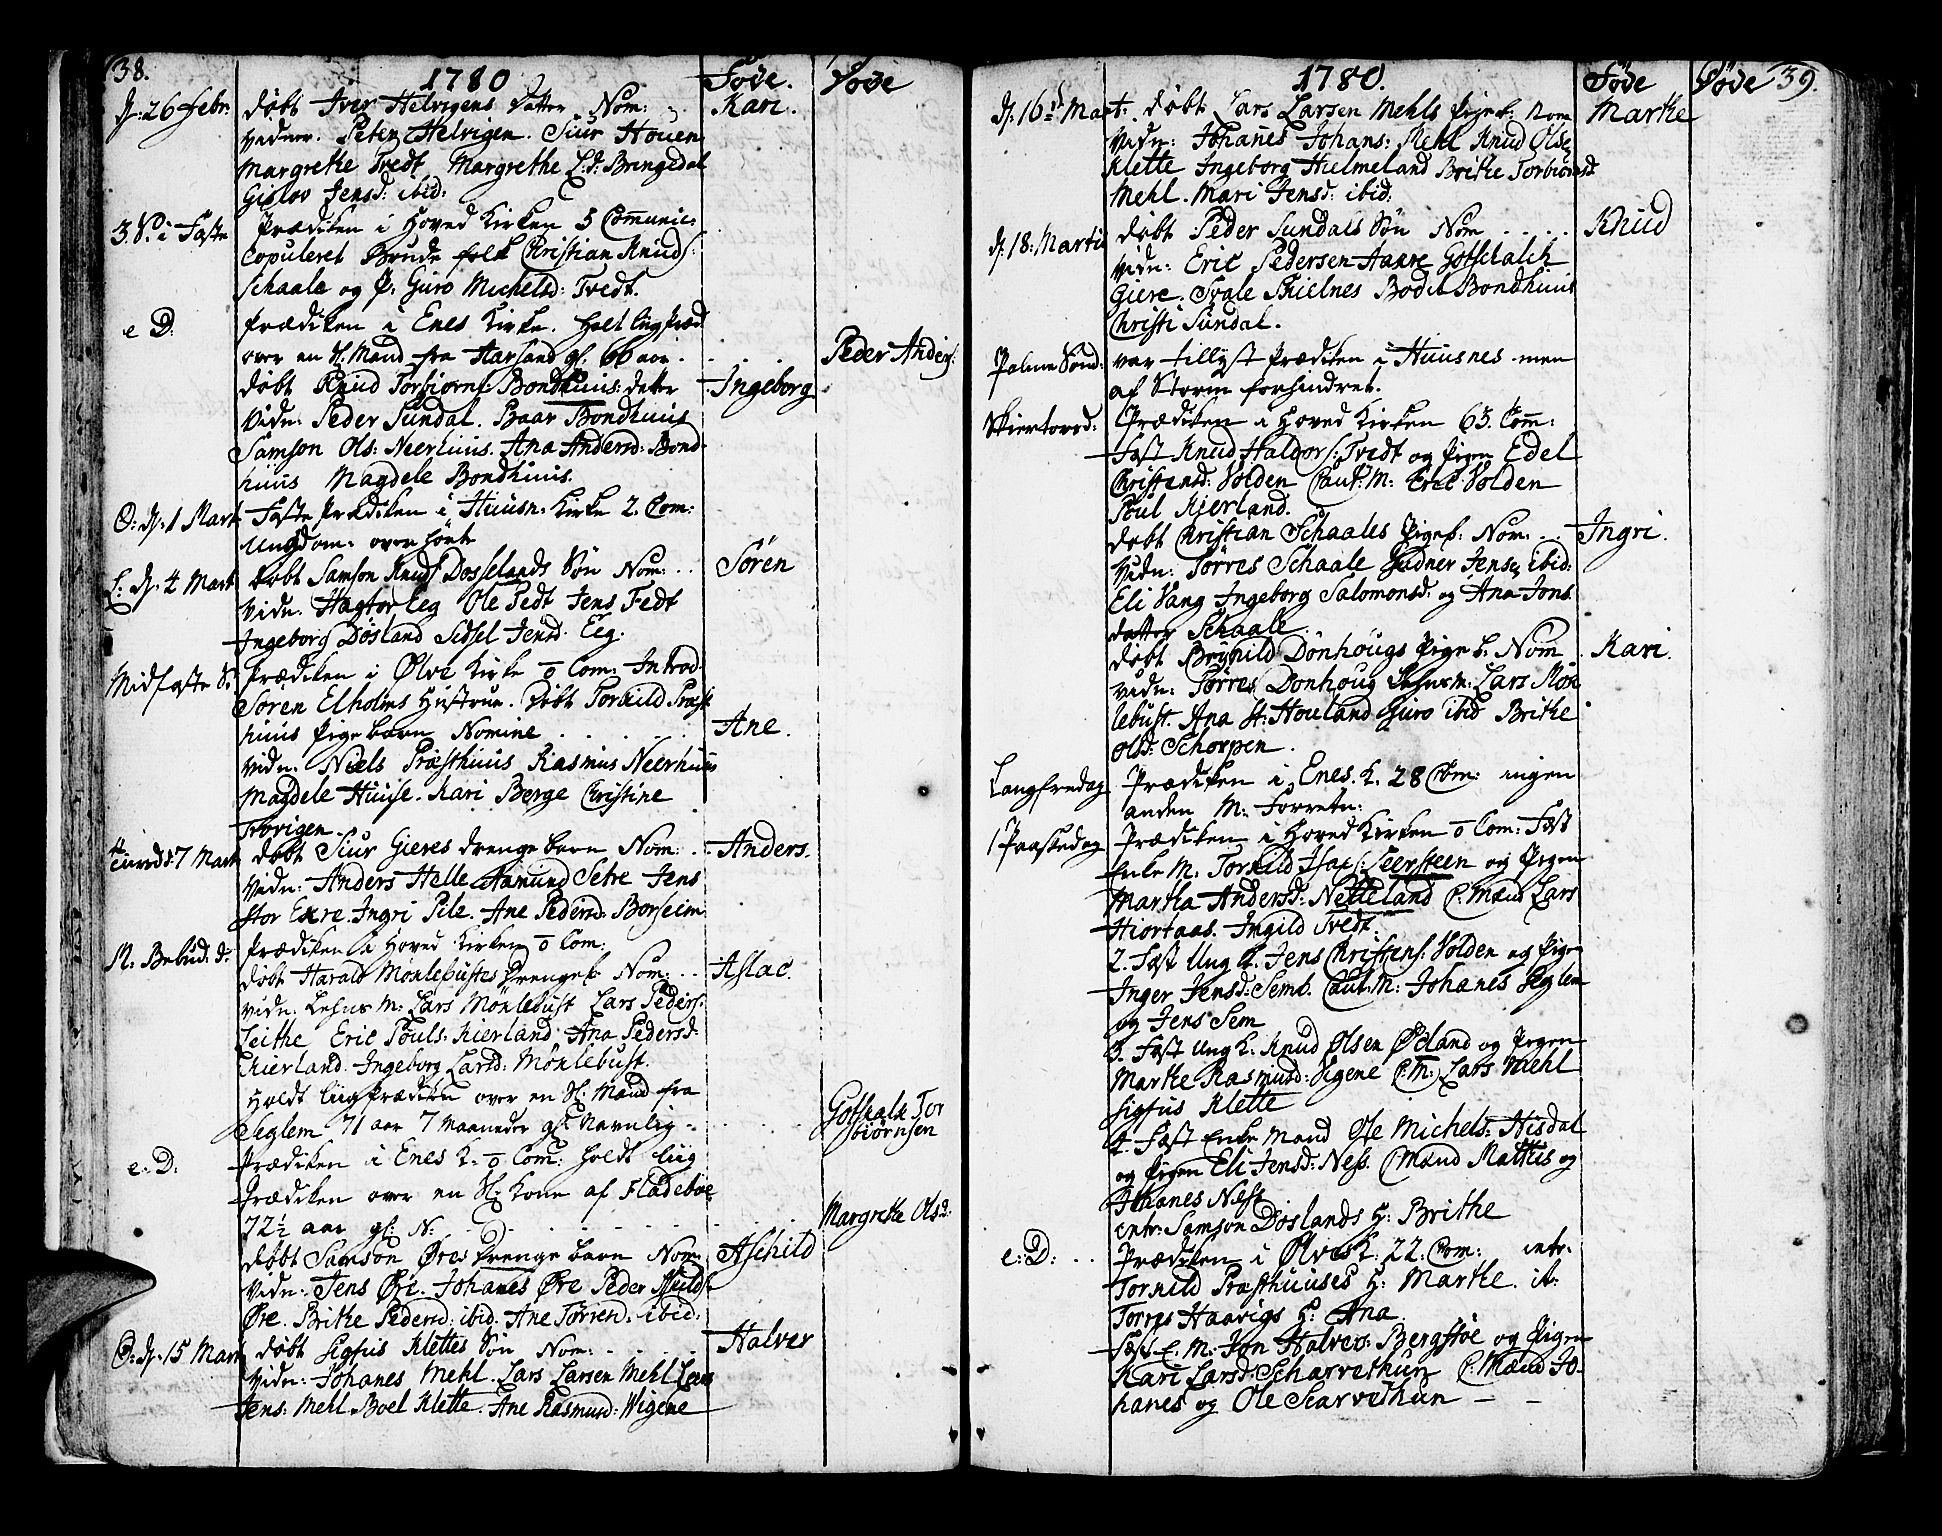 38.
1780
Føde.
Døde
D: 26 Febr.
døbt Iver Helvigens Datter Nom:
Kari.
vidner. Peter Helvigen. Siur Houen
Margrethe Tvedt Margrethe L:d: Bringedal
Gislov Jensd: ibid:
3. S. i Faste
Prædiken i Hoved Kirken 5 Communic:
Copuleret Brude folk Christian Knuds:
Schaale og P. Guro Michelsd: Tvedt.
e D:
Prædiken i Enes Kirke. holt liig præd
over en Sl. Mand fra Harsand gl. 66 aar.
Peder Anders:
døbt Knud Torbiørns: Bondhuus: datter
Ingeborg
Vidn: Peder Sundal. Baar Bondhuus
Samson Ols: Neerhuus. Ana Andersd: Bond-
huus Magdele Bondhuus.
O: D: 1 Mart
Faste Prædiken i Huusn: Kirke 2. Com:
Ungdom: over hørt
L: D: 4 Mart
døbt Samson Knuds Dosselands Søn Nom: . .
Søren
Vidn. Hagtor Eeg Ole Tedt Jens Tedt
Ingeborg Døsland Sidsel Jensd. Eeg.
Midfaste S:
Prædiken i Ølve Kirke 0 Com: Introd.
Søren Elholms Hustrue. Døbt Torkild Præst
huus Pige barn Nomine . . . .
Ane.
Vidn: Niels Præsthuus Rasmus Neerhuus
Magdele Huuse. Kari Berge Christine
Trovigen.
Tiursd: 7 Mart
døbt Siur Gieres drenge barn Nom: . .
Anders.
Vidn: Anders Helle Aamund Setre Jens
Stor Exre. Ingri Pile. Ane Pedersd: Borseim
M. Bebud: d:
Prædiken i Hoved Kirken 0 Com:
døbt Harald Mønlebustes Drengeb: Nom: . .
Aslac.
vidn: Lehns M: Lars Mønlebust Lars Peders:
Teithe Eric Pouls: Kierland Ana Pedersd:
Kierland. Ingeborg Larsd: Mønlebust.
Holdt liigprædiken over en Sl: Mand fra
Teglem 71 aar 7 Maaneder gl: Navnlig -
Gotskalk Tor
biørnsen
e. D:
Prædiken i Enes K. 0 Com: holdt liig
Prædiken over en Sl: Kone af Fladebøe
72½ aar gl: N. - - - - -
Margrete Olsd:
døbt Samson Øres Drenge barn Nom
Aschild
Vidn: Jens Øre. Johanes Øre Peder
Øre. Brithe Pedersd: ibid. Ane Tørresd. ibid:
O: D. 15 Mart
døbt Sigfus Klettes Søn Nom: . . .
Halver
Vidn: Johanes Mehl. Lars Larsen Mehl Lars
Jens: Mehl Boel Klette. Ane Rasmusd: Wigene
1780.
Føde
Døde
39.
D. 16 Mart.
døbt Lars Larsen Mehls Pigeb. Nom
Marthe
Vidn: Johanes Johans: Mehl Knud Olsen
Klette Ingeborg Hielmeland Brithe Torbiørnsd
Mehl. Mari Jensd: ibid:
D. 18: Martii
døbt Peder Sundals Søn Nom . . . .
Knud
Vidn: Eric Pedersen Aanre Gotschalch
Giere. Svale Skielnes Bodil Bondhuus
Christi Sundal.
Palme Sønd:
var tillyst Prædiken i Huusnes men
af Storm forhindret.
Skiertorsd:
Prædiken i Hoved Kirken 63. Com:
Fæst Knud Haldors: Tvedt og Pigen Edel
Christensd: Volden Caut: M: Eric Volden
Poul Kierland.
døbt Christian Schaales Pigeb: Nom: . .
Ingri.
Vidn: Tørres Schaale Gudner Jensen ibid:
Eli Vang Ingeborg Salomonsd: og Ana Jons
datter Schaale
døbt Brynild Dønhougs Pigeb. Nom
Kari.
Vidn: Tørres Dønhoug Lehnsm: Lars Møn
lebust. Ana St: Houland Guro ibid Brithe
Olsd: Schorpen.
Langfredag
Prædiken i Enes. K. 28 Com: ingen
anden M: Forretn:
1 Paaskedag
Prædiken i Hoved Kirken 0 Com: Fæst
Enke M. Torkild Isacs: Leersteen og Pigen
Martha Andersd: Netteland C: Mænd Lars
Hiortaas. Ingild Tvedt:
2. Fæst Ung K. Jens Christens: Volden og Pigen
Inger Jensd: Semb. Caut: M: Johanes Teglem
og Jens Sem
3. Fæst Ung K: Knud Olsen Ødland og Pigen
Marthe Rasmusd: Vigene C: M: Lars Mehl
Sigfus Klette
4. Fæst Enke Mand Ole Michels: Hisdal
og Pigen Eli Jensd: Ness. C Mænd Mathis og
Johanes Ness
Intr: Samson Døslands H: Brithe
e: D: . .
Prædiken i Ølves K. 22. Com: intr.
Torkild Præsthuuses H: Marthe. it.
Torres Haavigs H: Ana
Fæst E. M: Jon Halvers: Bergstøe og Pigen
Kari Larsd: Scharvethun C: Mænd Jo-
hanes og Ole Skarvethun - -